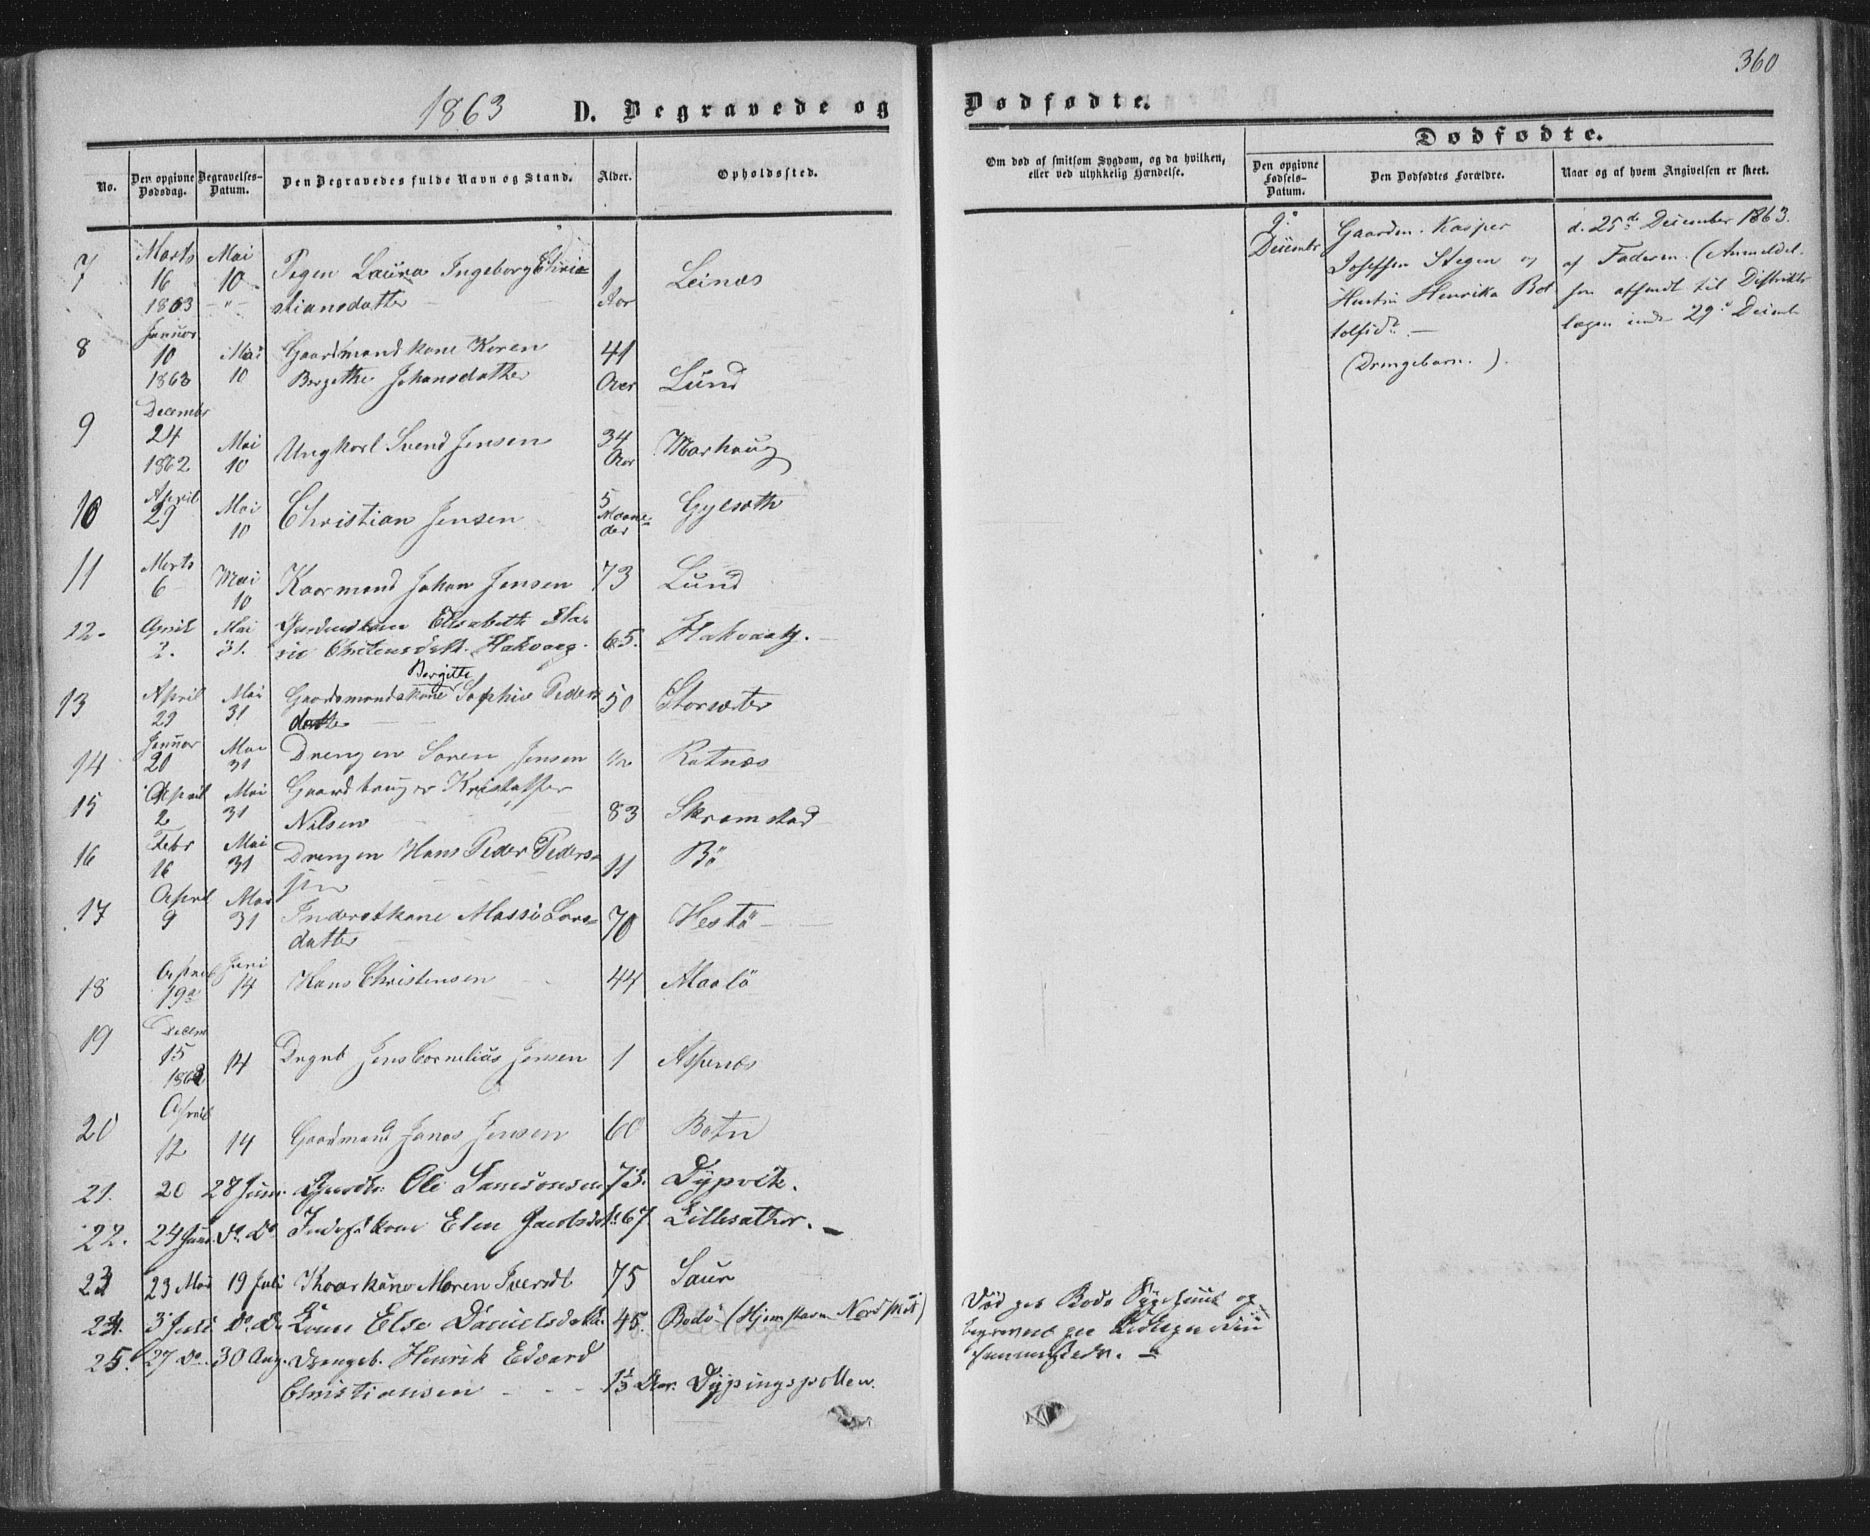 360
1863 D. Begravede og Dødfødte.
No.
Den opgivne Dødsdag.
Begravelses-Datum.
Den Begravedes fulde Navn og Stand.
Alder.
Opholdssted.
Om død af smitsom Sygdom, og da hvilken, eller ved ulykkelig Hændelse.
Dødfødte.
Den opgivne Fødsels-Datum.
Den Dødfødtes Forældre.
Naar og af hvem Angivelsen er skeet.
7 Marts 16 1863 Mai 10 Pigen Laura Ingeborg Chri-
stiansdatter 1 Aar Leinæs
8 Januar 10 1863 Mai 10 Gaardmandkone Karen
Bergithe Johansdatter 41 Aar Lund
9 Decembr 24 1862 Mai 10 Ungkarl Svend Jensen 34 Aar Marhaug
10 April 29 Mai 10 Christian Jensen 5 Maane-
der Gylseth
11 Marts 6 Mai 10 Kaarmand Johan Jensen 73 Lund
12. April 2. Mai 31. Elisabeth Ma-
rie Hakvaag. 65. Hakvaag.
13 April 29 Mai 31 Gaardsmandskone Bergitte Sophie Peders
datter 50 Storsæter
14 Januar 20 Mai 31 Drengen Søren Jensen 1/2 Rotnæs
15 April 2 Mai 31 Gaardbruger Kristoffer
Nilsen 83 Skramstad
16 Febr 16 Mai 31 Drengen Hans Peder Peders-
sen 11 Bö
17 April 9 Mai 31 Inderstkone Massi Lars-
datter 70 Hestö
18 April 19de Juni 14 Hans Christensen 44 Maalö
19 Decem 15 14 Drgnb Jens Cornelius Jensen 1 Aspenæs
20 April 12 14 Gaardmand Jonas Jensen 60 Botn
21. 20 28 Juni Ole Samsonsen 73. Dypvik.
22. 24 Juni. Do. Do. Inderstkone Elen 67 Lillesæther.
23 23 Mai 19 Juli Kaarkone Maren Iversdt 75 Saur
24. 3 Juli Do. Do Kone Else Danielsdatter 45. Bodö (Hjemstavn Nordfold)
25. 27 Do. 30 Aug. Drengeb. Henrik Edvard
Christiansen Aar. Dypingspollen.
Død paa Bodø Sygehuus og
begravet paa
sammesteds.
9de Decembr
Gaardm. Kasper
Josefsen Stegen og
Hustru Henrika Bot
tolfsdtr.
(Drengebarn.).
d. 25de December 1863.
af Faderen. (Anmeldel
sen afsendt til Distrikts
lægen 29de Decembr